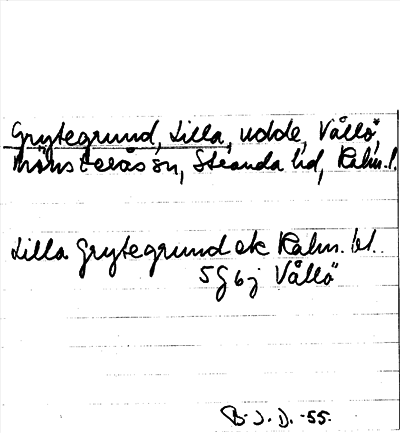 Grytegrund, Lilla, udde, Vållö,
Mönsterås sn, Stranda hd, Kalm. l.
Lilla Grytegrund ek Kalm. bl.
5G6j Vållö
B.J.D. -55.